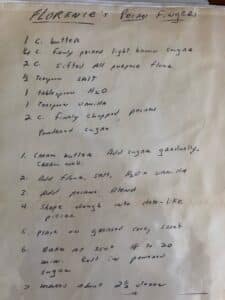 FLORENCE's PECAN FINGERS
1 C. butter
C. firmly packed light brown sugar
2 C. Sifted all purpose flour
Teaspoon SALT
1 tablespoon H2O
1 Teaspoon vanilla
2 C. finely chopped pecans
Powdered sugar
1. Cream butter Add sugar gradually.
Cream well
2. Add flour, salt, H2O & vanilla
3 Add pecans Blend
4 Shape dough into date-like
pieces
5 place on greased cookie sheet
6 Bake at 350° to 20
min. Roll in powdered
sugar
7 makes about dozen